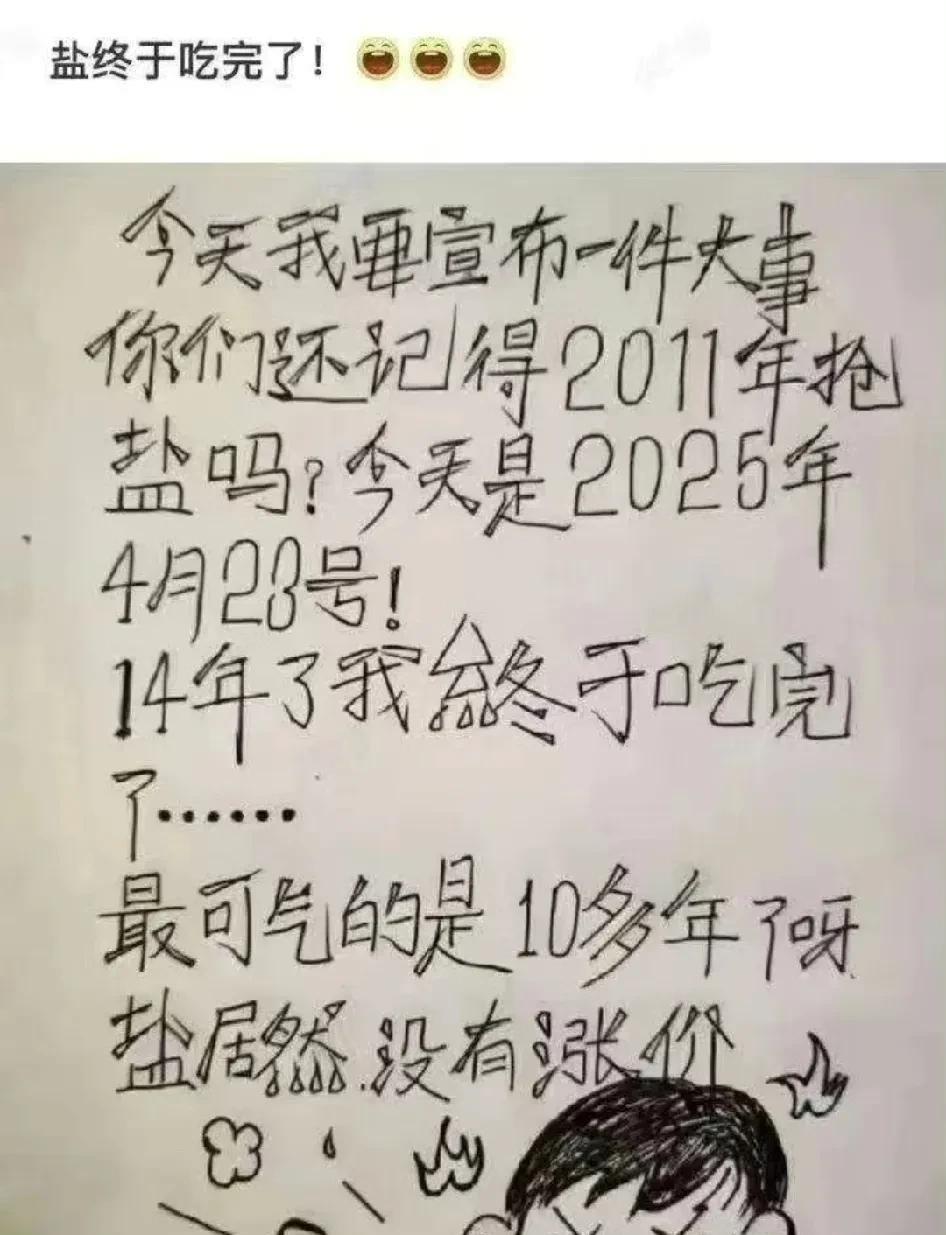 盐终于吃完了！😄😄😄
今天我要宣布一件大事
你们还记得2011年抢
盐吗?今天是2025年
4月23号!
14年了我终于吃完
了······
最可气的是10多年了呀
盐居然没有涨价